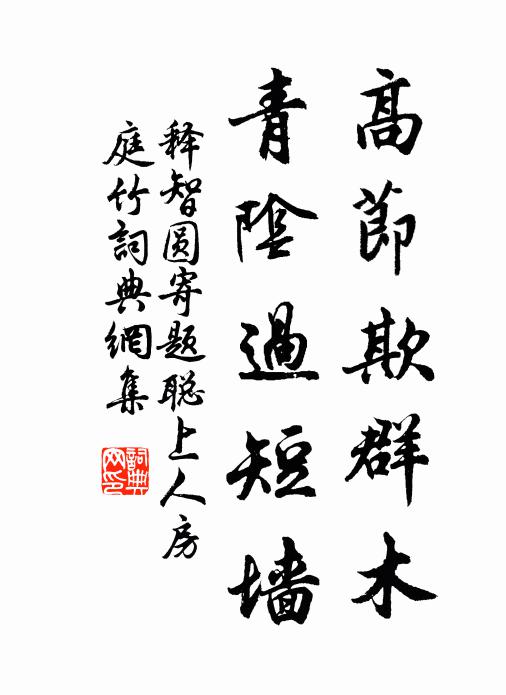 高節欺群木
青陰過短墻
释智圆寄题聪上人房
庭竹詞典網集
詞典网印